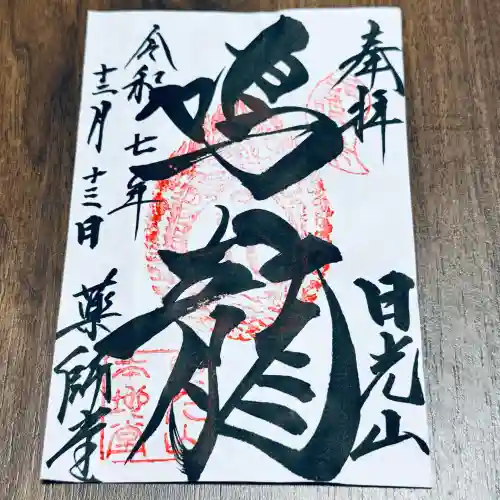 奉拝
日光山
鳴龍
令和七年
十二月十三日
薬師堂
本地堂